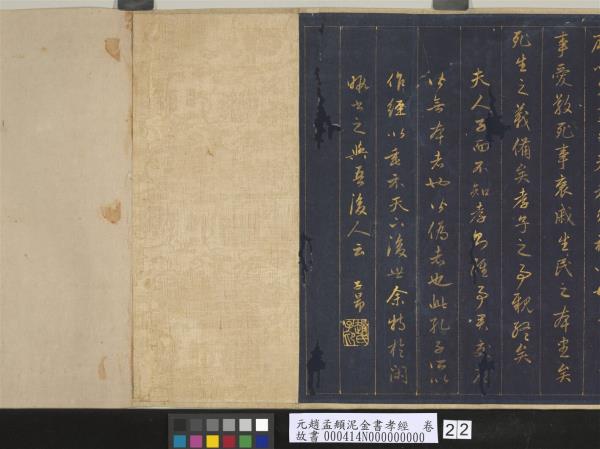 事愛敬死事哀戚生民之本盡矣
死生之義備矣孝子之事親終矣
夫人子而不知孝
此無本者也此偽者也此孔子所以
作經以垂示天下後世余特於閒
暇書之與吾後人云 子昂
元趙孟頫泥金書孝經 卷
故書 000414N000000000
22